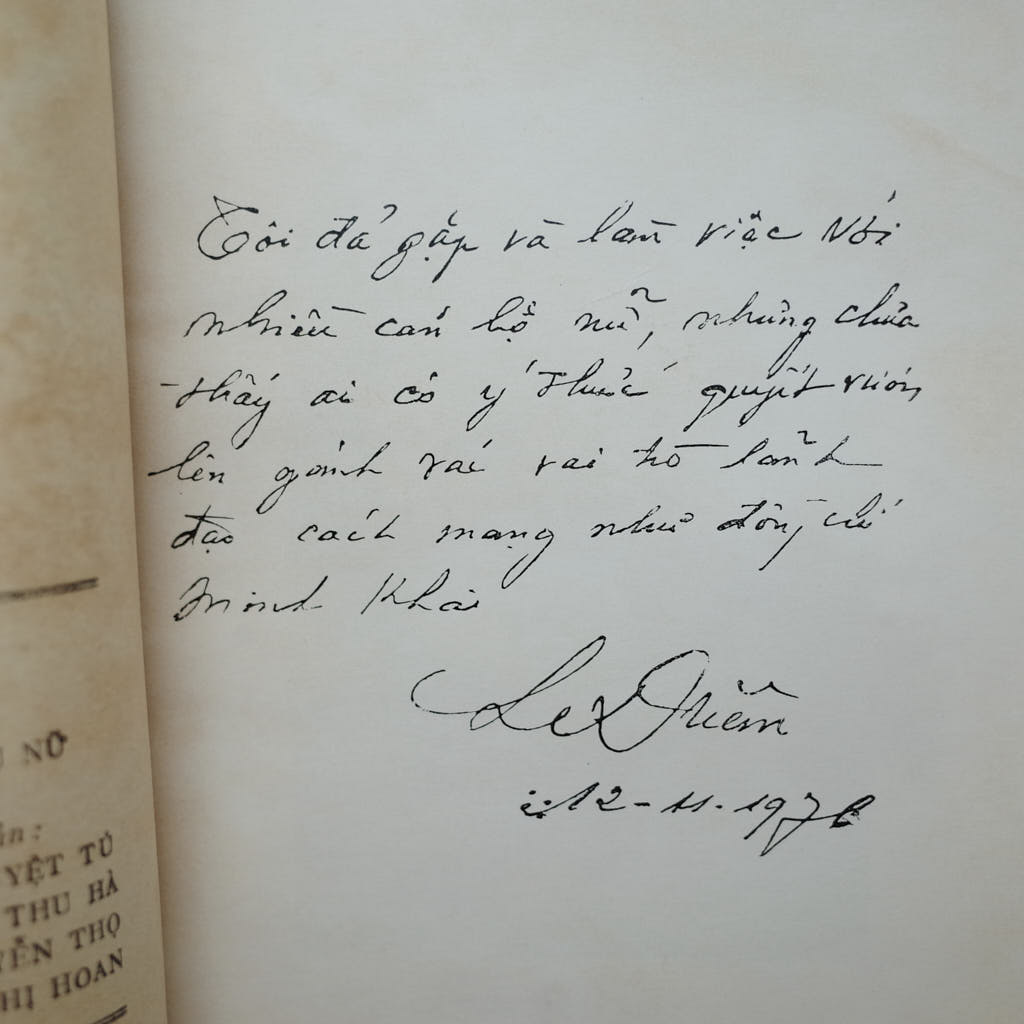 Tôi đả gặp và làm việc Với
nhiều cán bộ nữ, nhưng chưa
thấy ai có ý thức quyết vươn
lên gánh vác vai trò lãnh
đạo cách mạng như đồng chí
Minh Khai
NỮ
YỆT TÚ
THU HÀ
YỄN THỌ
HỊ HOAN